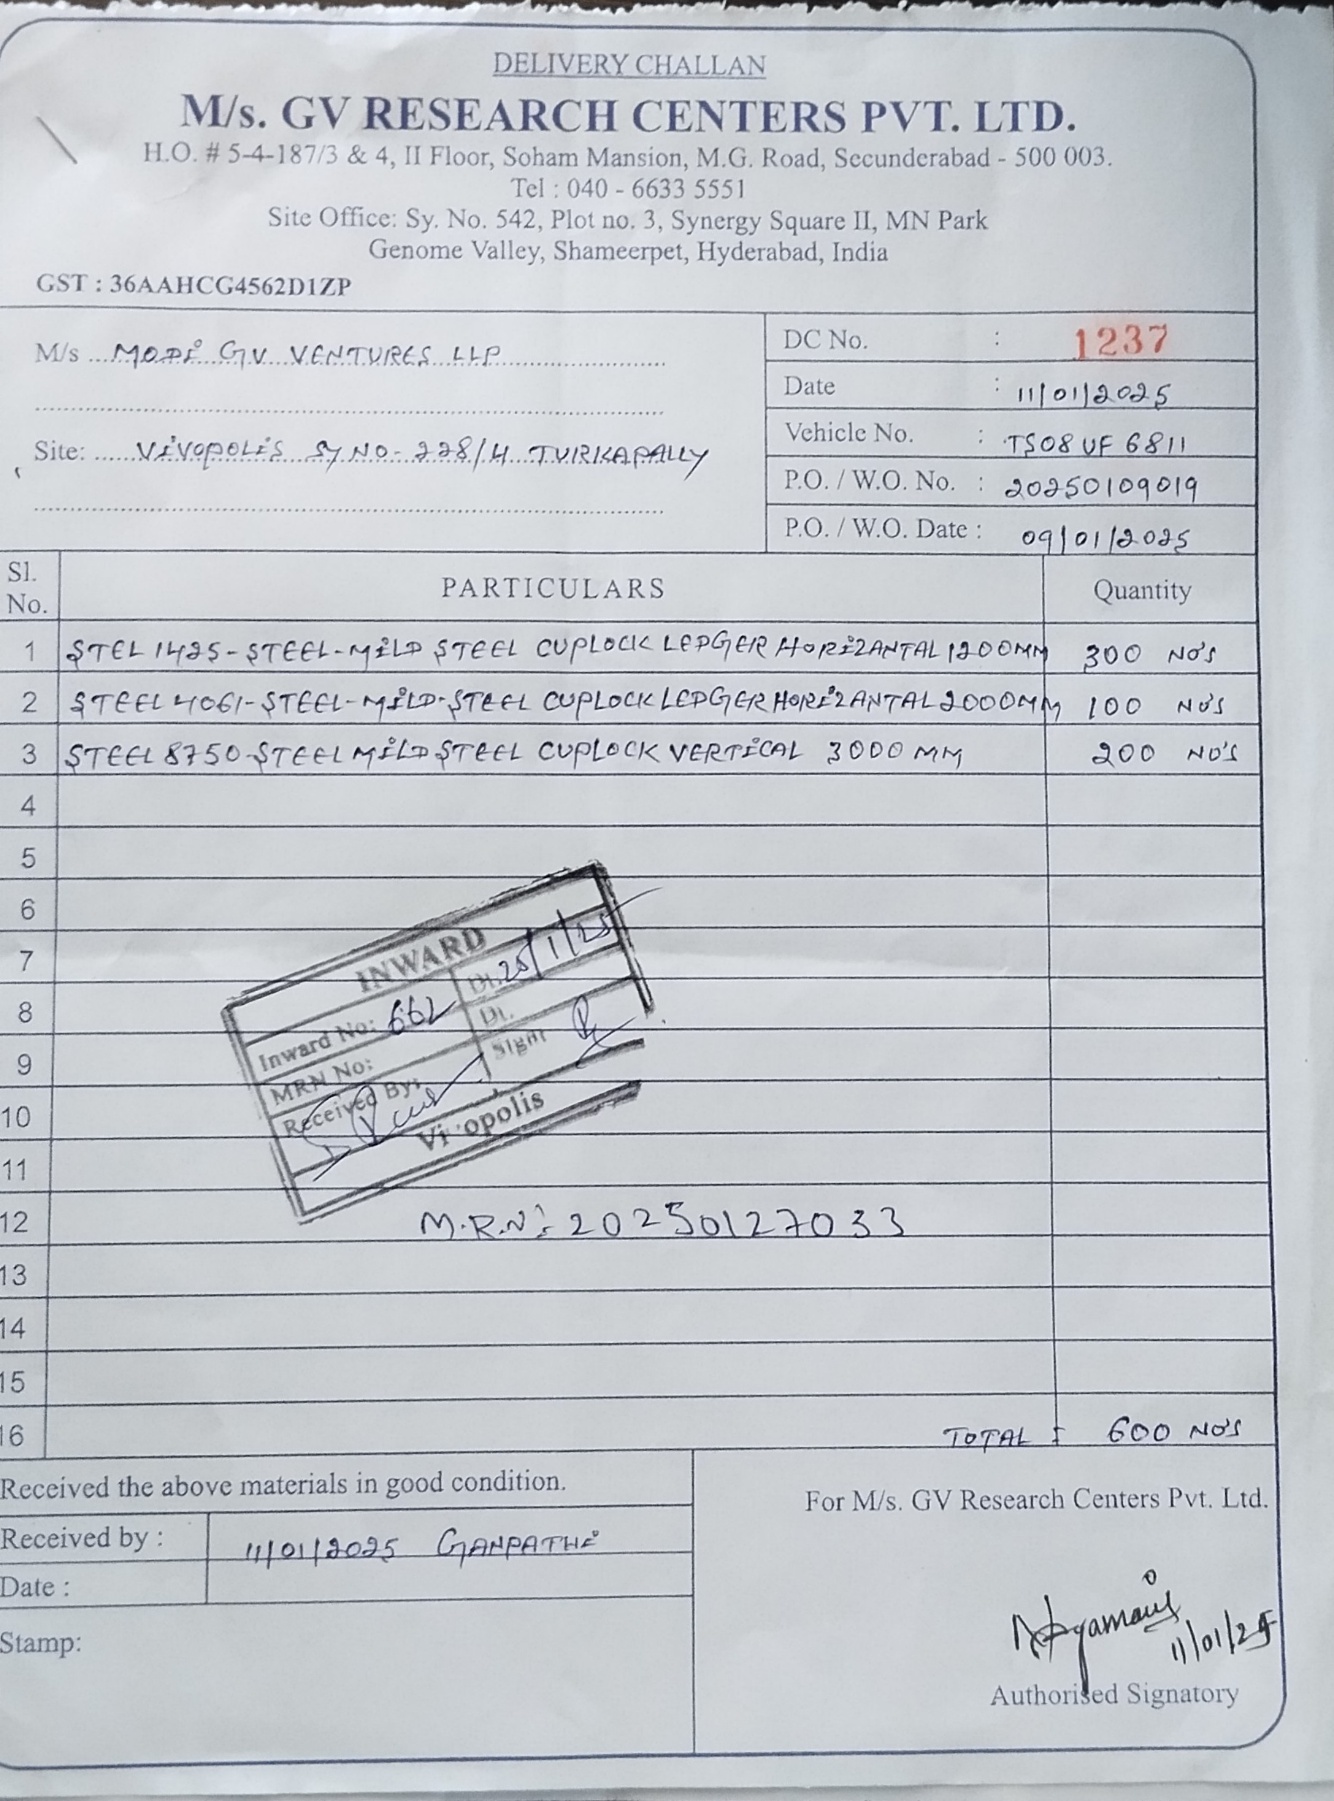 DELIVERY CHALLAN
M/s. GV RESEARCH CENTERS PVT. LTD.
H.O. # 5-4-187/3 & 4, II Floor, Soham Mansion, M.G. Road, Secunderabad - 500 003.
Tel : 040 - 6633 5551
Site Office: Sy. No. 542, Plot no. 3, Synergy Square II, MN Park
Genome Valley, Shameerpet, Hyderabad, India
GST : 36AAHCG4562D1ZP
M/s MODI GV VENTURES LLP
Site: VIVOPOLIS SY NO- 228/4 TURKAPALLY
DC No. : 1237
Date : 11/01/2025
Vehicle No. : TS08 UF 6811
P.O. / W.O. No. : 20250109019
P.O. / W.O. Date : 09/01/2025
Sl. No. PARTICULARS Quantity
1 STEL 1425-STEEL-MILD STEEL CUPLOCK LEDGER HORIZANTAL 1200MM 300 NO'S
2 STEEL 4061-STEEL-MILD-STEEL CUPLOCK LEDGER HORIZANTAL 2000MM 100 NO'S
3 STEEL 8750-STEEL MILD STEEL CUPLOCK VERTICAL 3000 MM 200 NO'S
4
5
6
7
8
9
10
11
12
13
14
15
16
INWARD
Inward No: 662 Dt. 25/1/25
MRN No: Dt.
Received By: Sign
Vi opolis
M.R.N: 20250127033
TOTAL : 600 NO'S
Received the above materials in good condition.
Received by : 11/01/2025 GANPATHI
Date :
Stamp:
For M/s. GV Research Centers Pvt. Ltd.
11/01/25
Authorised Signatory